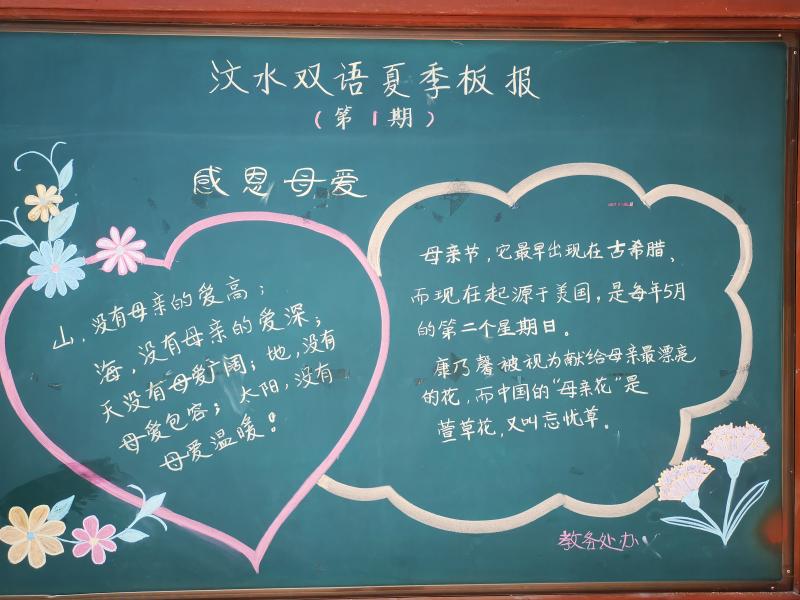 汶水双语夏季板报
（第1期）
感恩母爱
山，没有母亲的爱高；
海，没有母亲的爱深；
天没有母爱广阔；地，没有
母爱包容；太阳，没有
母爱温暖！
母亲节，它最早出现在古希腊、
而现在起源于美国，是每年5月
的第二个星期日。
康乃馨被视为献给母亲最漂亮
的花，而中国的“母亲花”是
萱草花，又叫忘忧草。
教务处办